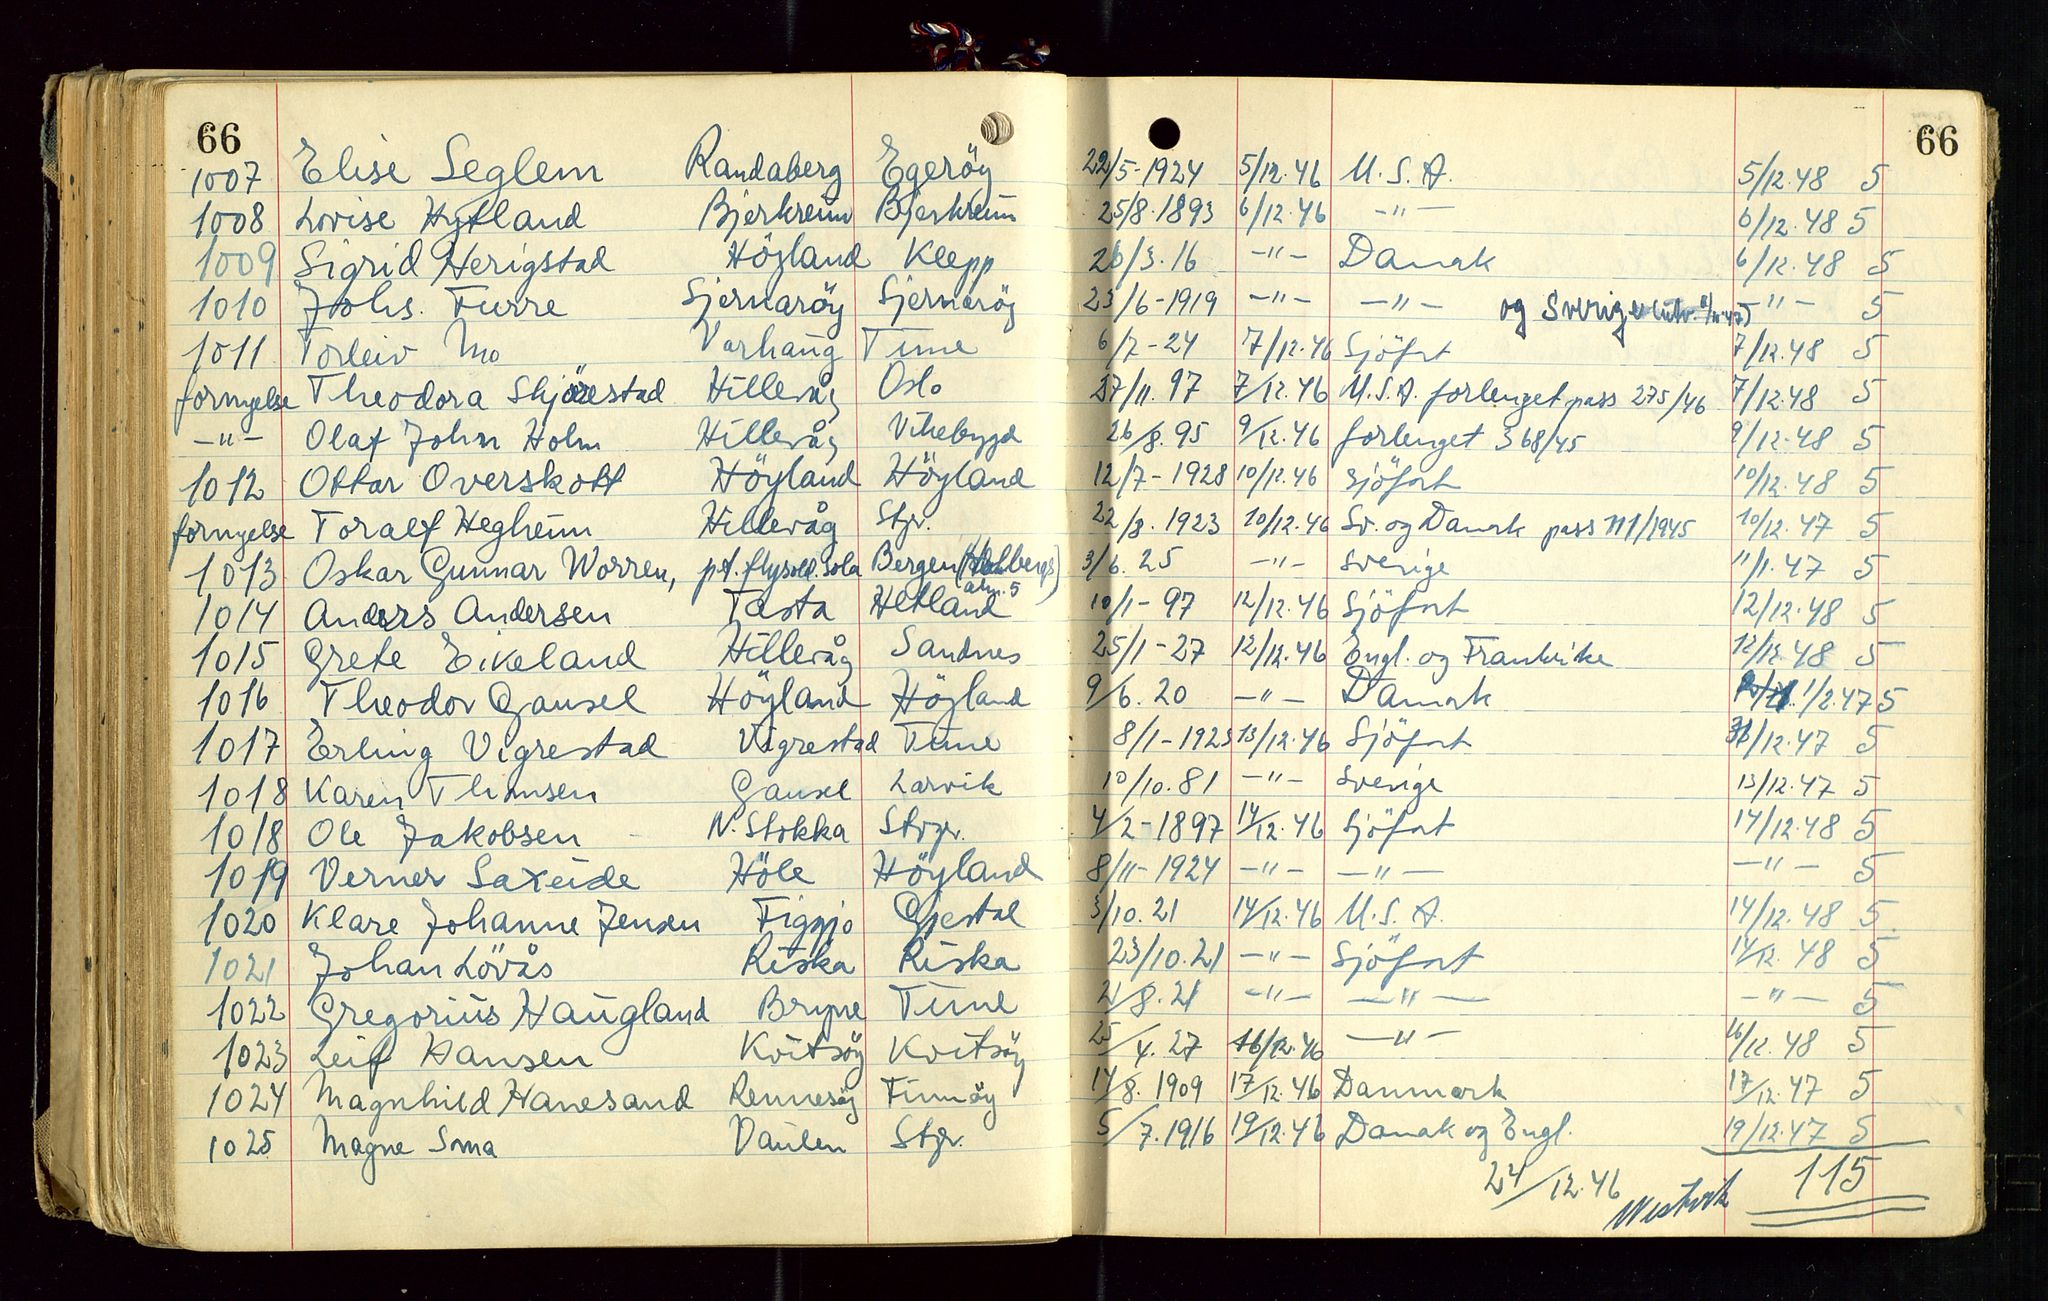 66 66
1007 Elise Seglem Randaberg Egeröy 22/5-1924 5/12.46 U.S.A. 5/12.48 5
1008 Lovise Hytland Bjerkreim Bjerkreim 25/8.1893 6/12.46 -"- 6/12.48 5
1009 Sigrid Herigstad Höyland Klepp 26/3.16 -"- Danmk 6/12.48 5
1010 Johs. Furre Sjernaröy Sjernaröy 23/6-1919 -"- -"- og Sverige -"- 5
1011 Torleiv Mo Varhaug Time 6/7-24 7/12.46 Sjöfart 7/12.48 5
fornyelse Theodora Skjörestad Hillevåg Oslo 27/11.97 7/12.46 U.S.A. forlenget pass 275/46 7/12.48 5
-"- Olaf John Holm Hillevåg Vikebygd 26/8.95 9/12.46 forlenget 368/45 9/12.48 5
1012 Ottar Overskott Höyland Höyland 12/7-1928 10/12.46 Sjöfart 10/12.48 5
fornyelse Toralf Hegheim Hillevåg Stgr. 22/3.1923 10/12.46 Sv. og Danmk pass 111/1945 10/12.47 5
1013 Oskar Gunnar Worren, pt. flypl. Sola Bergen 3/6.25 -"- Sverige 11/1.47 5
1014 Anders Andersen Tasta Hetland 10/1-97 12/12.46 Sjöfart 12/12.48 5
1015 Grete Eikeland Hillevåg Sandnes 25/1-27 12/12.46 Engl. og Frankrike 12/12.48 5
1016 Theodor Gausel Höyland Höyland 9/6.20 -"- Danmk 1/2.47 5
1017 Erling Vigrestad Vigrestad Time 8/1-1923 13/12.46 Sjöfart /12.47 5
1018 Karen Thomsen Gausel Larvik 10/10.81 -"- Sverige 13/12.47 5
1018 Ole Jakobsen N. Stokka Stvgr. 4/2-1897 14/12.46 Sjöfart 14/12.48 5
1019 Verner Saxeide Höle Höyland 8/11-1924 -"- -"- -"- 5
1020 Klare Johanne Jensen Figgjo Gjestal 3/10.21 14/12.46 U.S.A. 14/12.48 5
1021 Johan Lövås Riska Riska 23/10.21 -"- Sjöfart 14/12.48 5
1022 Gregorius Haugland Bryne Time 21/8.21 -"- -"- -"- 5
1023 Leif Hansen Kvitsöy Kvitsöy 25/4.27 16/12.46 -"- 16/12.48 5
1024 Magnhild Hanesand Rennesöy Finnöy 14/8.1909 17/12.46 Danmark 17/12.47 5
1025 Magne Sma Vaulen Stgr. 5/7.1916 19/12.46 Danmk og Engl. 19/12.47 5
24/12.46 115